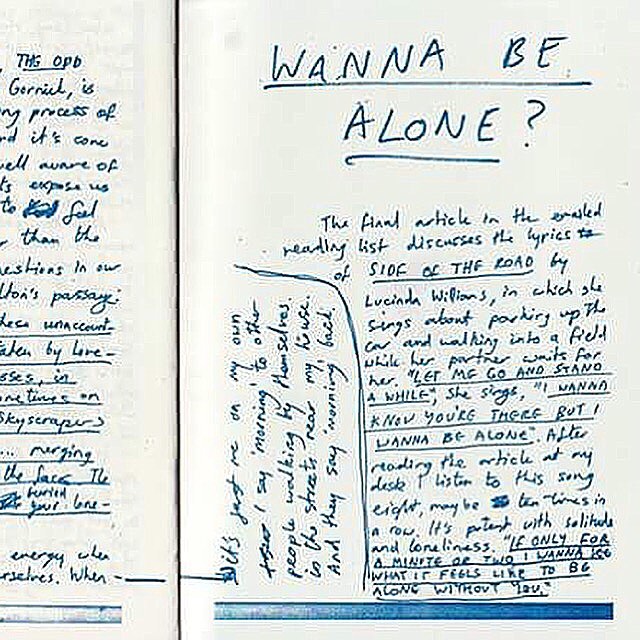 THE ODD
Gornick, is
ng process of
nd it's core
well aware of
ts expose us
to feel
r than the
uestions in our
lton's passage:
these unaccount-
taken by lone-
sses, in
metimes on
skyscrapers
... merging
the face. The
buried
your lone-
energy when
rselves. When
WANNA BE
ALONE?
The final article in the emailed
reading list discusses the lyrics
of SIDE OF THE ROAD by
Lucinda Willians, in which she
sings about parking up the
car and walking into a field
while her partner waits for
her. "LET ME GO AND STAND
A WHILE", she sings, "I WANNA
KNOW YOU'RE THERE BUT I
WANNA BE ALONE". After
reading the article at my
desk I listen to this song
eight, maybe ten times in
a row. It's potent with solitude
and loneliness. "IF ONLY FOR
A MINUTE OR TWO I WANNA SEE
WHAT IT FEELS LIKE TO BE
ALONE WITHOUT YOU."
It's just me on my own
I say 'morning' to other
people walking by themselves.
in the streets near my house.
And they say 'morning' back